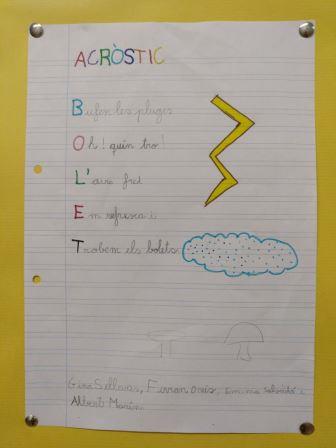 ACRÒSTIC
Bufen les pluges
Oh! quin tro!
L'aire fred
Em refresca i
Trobem els bolets
Ferran, Emma i
Albert Marín.